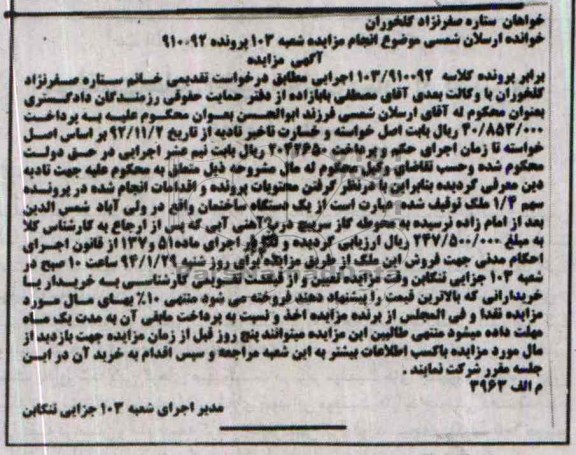 خواهان ستاره صفرنژاد گلخوران
خوانده ارسلان شمسی موضوع انجام مزایده شعبه ۱۰۳ پرونده ۹۱۰۰۹۲
آگهی مزایده
برابر پرونده کلاسه ۱۰۳/۹۱۰۰۹۲ اجرایی مطابق درخواست تقدیمی خانم ستاره صفرنژاد
گلخوران با وکالت بعدی آقای مصطفی بابازاده از دفتر حمایت حقوقی رزمندگان دادگستری
بعنوان محکوم له آقای ارسلان شمسی فرزند ابوالحسن بعنوان محکوم علیه به پرداخت
۴۰/۸۵۳/۰۰۰ ریال بابت اصل خواسته و خسارت تاخیر تادیه از تاریخ ۹۲/۱۱/۲ بر اساس اصل
خواسته تا زمان اجرای حکم و پرداخت ۲۰۴۲۶۵۰ ریال بابت نیم عشر اجرایی در حق دولت
محکوم شده وحسب تقاضای وکیل محکوم له مال مشروحه ذیل متعلق به محکوم علیه جهت تادیه
دین معرفی گردیده بنابراین با درنظر گرفتن محتویات پرونده و اقدامات انجام شده در پرونده
سهم ۱/۴ ملک توقیف شده عبارت است از یک دستگاه ساختمان واقع در ولی آباد شمس الدین
بعد از امام زاده نرسیده به محوطه گاز سرپیچ درب آهنی آبی که پس از ارجاع به کارشناس کلا
به مبلغ ۲۴۷/۵۰۰/۰۰۰ ریال ارزیابی گردیده و نظر در اجرای ماده ۵۱ و ۱۳۷ از قانون اجرای
احکام مدنی جهت فروش این ملک از طریق مزایده برای روز شنبه ۹۴/۱/۲۹ ساعت ۱۰ صبح در
شعبه ۱۰۳ جزایی تنکابن وقت مزایده تعیین و از قیمت تقویمی کارشناسی به خریدار یا
خریدارانی که بالاترین قیمت را پیشنهاد دهند فروخته می شود منتهی ۱۰٪ بهای مال مورد
مزایده نقدا و فی المجلس از برنده مزایده اخذ و نسبت به پرداخت مابقی آن به مدت یک ماه
مهلت داده میشود متنهی طالبین این مزایده میتوانند پنج روز قبل از زمان مزایده جهت بازدید از
مال مورد مزایده باکسب اطلاعات بیشتر به این شعبه مراجعه و سپس اقدام به خرید آن در این
جلسه مقرر شرکت نمایند .
م الف ۳۹۶۳
مدیر اجرای شعبه ۱۰۳ جزایی تنکابن